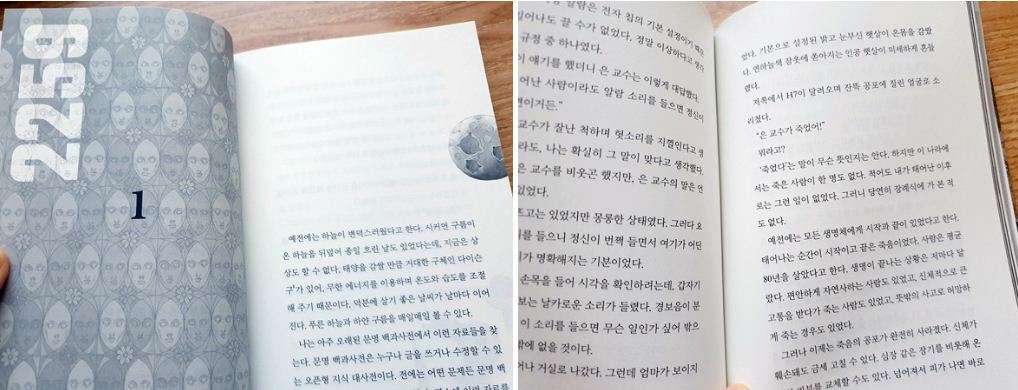 2259
1
예전에는 하늘이 변덕스러웠다고 한다. 시커먼 구름이
온 하늘을 뒤덮어 종일 흐린 날도 있었다는데, 지금은 상
상도 할 수 없다. 태양을 감쌀 만큼 거대한 구체인 '다이슨
구'가 있어, 무한 에너지를 이용하며 온도와 습도를 조절
해 주기 때문이다. 덕분에 살기 좋은 날씨가 날마다 이어
진다. 푸른 하늘과 하얀 구름을 매일매일 볼 수 있다.
나는 아주 오래된 문명 백과사전에서 이런 자료들을 찾
는다. 문명 백과사전은 누구나 글을 쓰거나 수정할 수 있
는 오픈형 지식 대사전이다. 전에는 어떤 문제든 문명 백
알람은 전자 칩의 기본 설정이기 때문
일어나도 끌 수가 없었다. 정말 이상하다고 생각
규정 중 하나였다.
이 얘기를 했더니 은 교수는 이렇게 대답했다.
어난 사람이라도 알람 소리를 들으면 정신이
변이거든.”
교수가 잘난 척하며 헛소리를 지껄인다고 생
라도, 나는 확실히 그 말이 맞다고 생각했다.
은 교수를 비웃곤 했지만, 은 교수의 말은 언
있었다.
뜨고는 있었지만 몽롱한 상태였다. 그러다 요
리를 들으니 정신이 번쩍 들면서 여기가 어딘
지가 명확해지는 기분이었다.
손목을 들어 시각을 확인하려는데, 갑자기
보는 날카로운 소리가 들렸다. 경보음이 분
이 소리를 들으면 무슨 일인가 싶어 밖으
밖에 없을 것이다.
나는 거실로 나갔다. 그런데 엄마가 보이지
었다. 기본으로 설정된 밝고 눈부신 햇살이 온몸을 감쌌
다. 연하늘색 잠옷에 쏟아지는 인공 햇살이 미세하게 흔들
렸다.
저쪽에서 H7이 달려오며 잔뜩 공포에 질린 얼굴로 소
리쳤다.
“은 교수가 죽었어!”
뭐라고?
'죽었다'는 말이 무슨 뜻인지는 안다. 하지만 이 나라에
서는 죽은 사람이 한 명도 없다. 적어도 내가 태어난 이후
로는 그런 일이 없었다. 그러니 당연히 장례식에 가 본 적
도 없다.
예전에는 모든 생명체에게 시작과 끝이 있었다고 한다.
태어나는 순간이 시작이고 끝은 죽음이었다. 사람은 평균
80년을 살았다고 한다. 생명이 끝나는 상황은 저마다 달
랐다. 편안하게 자연사하는 사람도 있었고, 신체적으로 큰
고통을 받다가 죽는 사람도 있었고, 뜻밖의 사고로 허망하
게 죽는 경우도 있었다.
그러나 이제는 죽음의 공포가 완전히 사라졌다. 신체가
훼손돼도 금세 고칠 수 있다. 심장 같은 장기를 비롯해 온
피부를 교체할 수도 있다. 넘어져서 피가 나면 바로